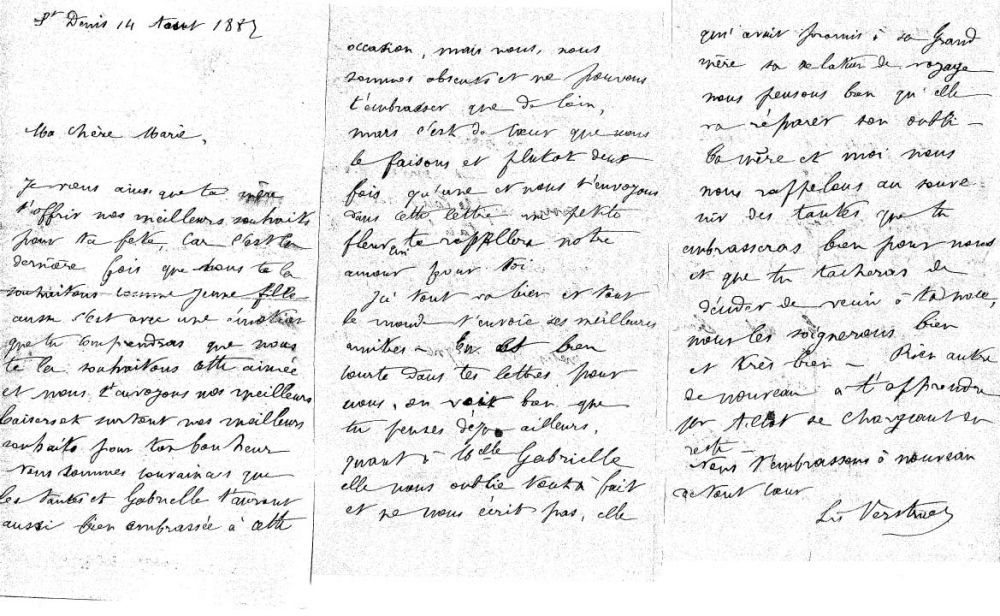 St Denis 14 Aout 188
Ma chère Marie,
Je viens ainsi que ta mère
t'offrir nos meilleurs souhaits
pour ta fête, car c'est la
dernière fois que nous te la
souhaitons comme jeune fille
aussi c'est avec une émotion
que tu comprendras que nous
te la souhaitons cette année
et nous t'envoyons nos meilleurs
baisers et surtout nos meilleurs
souhaits pour ton bonheur
Nous sommes convaincus que
les tantes et Gabrielle t'auront
aussi bien embrassée à cette
occasion, mais nous, nous
sommes absents et ne pouvons
t'embrasser que de loin,
mais c'est de cœur que nous
le faisons et plutot deux
fois qu'une et nous t'envoyons
dans cette lettre une petite
fleur qui te rappellera notre
amour pour toi
Ici tout va bien et tout
le monde t'envoie ses meilleures
amitiés - Tu est bien
courte dans tes lettres pour
nous, on voit bien que
tu penses déjà ailleurs,
quant à Melle Gabrielle
elle nous oublie tout à fait
et ne nous écrit pas, elle
qui avait promis à sa Grand
mère sa relation de voyage
nous pensons bien qu'elle
va réparer son oubli -
Ta mère et moi nous
nous rappelons au souve
nir des tantes que tu
embrasseras bien pour nous
et que tu tacheras de
décider de venir à ta noce,
nous les soignerons bien
et très bien - Rien autre
de nouveau à t'apprendre
se chargeant du
reste
Nous t'embrassons à nouveau
de tout cœur